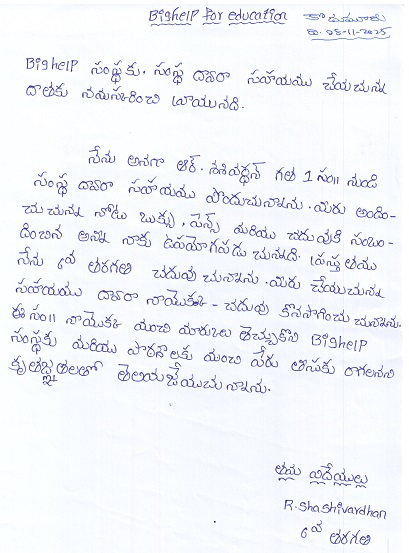 BigHelP For education
కారుమూరు
ది. 05-11-2025
BigHelP సంస్థకు, సంస్థ ద్వారా సహాయము చేయుచున్న
దాతకు నమస్కరించి వ్రాయునది.
నేను అనగా ఆర్. శశివర్ధన్ గత 1 సం॥ నుండి
సంస్థ ద్వారా సహాయము పొందుచున్నాను. మీరు అందిం-
చుచున్న నోటు బుక్కు, పెన్స్ మరియు చదువుకి సంబం-
ధించిన అన్ని నాకు ఉపయోగపడు చున్నది. ప్రస్తుతము
నేను 6వ తరగతి చదువు చున్నాను. మీరు చేయుచున్న
సహాయము ద్వారా నాయొక్క - చదువు కొనసాగించు చున్నాను.
ఈ సం॥ నాయొక్క మంచి మార్కులు తెచ్చుకొని BigHelP
సంస్థకు మరియు పాఠశాలకు మంచి పేరు తీసుకు రాగలనని
కృతజ్ఞతలతో తెలియజేయుచున్నాను.
తమ విధేయుల్లు
R. Shashivardhan
6వ తరగతి